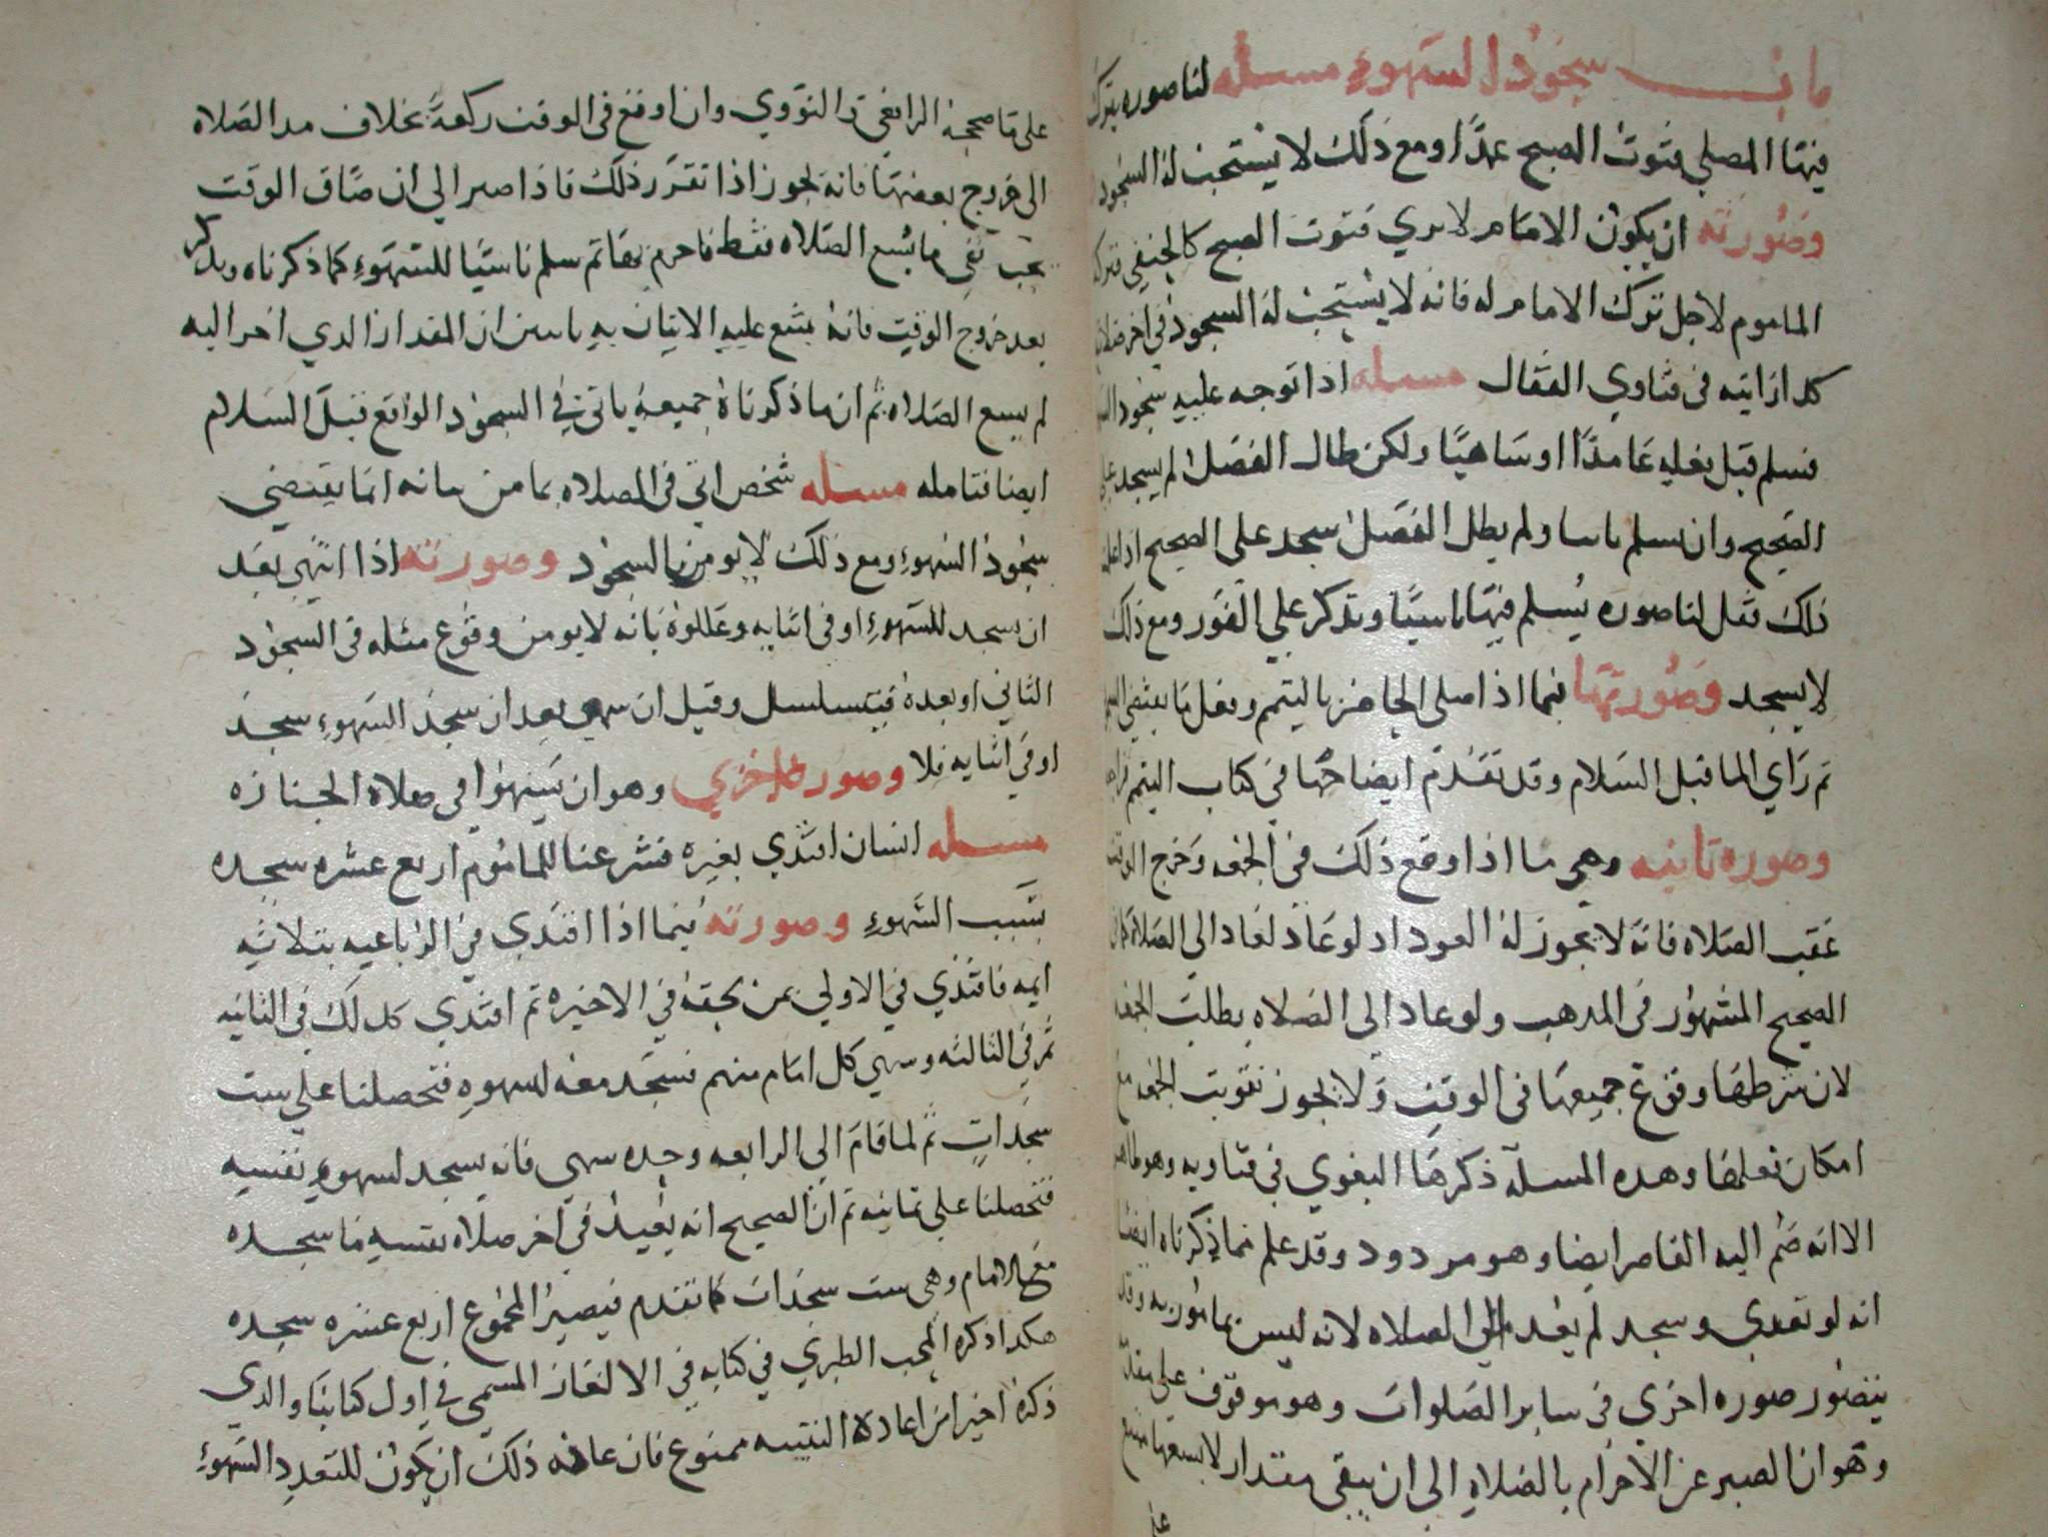 باب سجود السهو مسله لنا صوره يترك
فيها المصلي قنوت الصبح عمدًا ومع ذلك لا يستحب له السجود
وصورته ان يكون الامام لا يري قنوت الصبح كالحنفي فتركه
الماموم لاجل ترك الامام له فانه لا يستحب له السجود في اخر صلاته
كدا رايته في فتاوي القفال مسله اذا توجه عليه سجود
فسلم قبل فعله عامدًا او ساهيًا ولكن طال الفصل لم يسجد علي
الصحيح وان سلم ناسيا ولم يطل الفصل سجد علي الصحيح اذا علمت
ذلك فقل لنا صوره يُسلم فيها ناسيًا وتذكر علي الفور ومع ذلك
لا يسجد وصورتها فيما اذا صلي الحاضر بالتيمم وفعل ما يقتضي
ثم راي الما قبل السلام وقد تقدم ايضاحها في كتاب التيمم
وصوره ثانيه وهي ما اذا وقع ذلك في الجمعه وخرج الوقت
عقب الصلاه فانه لا يجوز له العود اد لو عاد لعاد الي الصلاة
الصحيح المشهور في المدهب ولو عاد الي الصلاه بطلت الجمعه
لان شرطها وقوع جميعها في الوقت ولا يجوز تفويت الجمعه مع
امكان فعلها وهده المسلة ذكرها البغوي في فتاويه وهو ظاهر
الا انه ضم اليه القاصر ايضا وهو مردود وقد علم مما ذكرناه ايضا
انه لو تعدي وسجد لم يعد الي الصلاه لانه ليس بمامور به وقد
يتصور صوره اخري في ساير الصلوات وهو موقوف علي مقدمة
وهو ان الصبر عن الاحرام بالصلاه الي ان يبقي مقدار لا يسعها ممتنع
علي
علي ما صححه الرافعي والنووي وان اوقع في الوقت ركعة بخلاف مد الصلاه
الي خروج بعضها فانه يجوز اذا تقرر ذلك فاذا صبر الي ان ضاق الوقت
بحيث بقي ما يسع الصلاه فقط فاحرم بها ثم سلم ناسيًا للسهو كما ذكرناه وتذكر
بعد خروج الوقت فانه يمتنع عليه الاتيان به لما سن ان المقدار الدي اخر اليه
لم يسع الصلاه ثم ان ما ذكرناه جميعه ياتي في السجود الواقع قبل السلام
ايضا فتامله مسله شخص اتي في الصلاه بما من شانه انما يقتضي
سجود السهو ومع ذلك لا يومر بالسجود وصورته اذا انتهي بعد
ان سجد للسهو او في اثنايه وعللوه بانه لا يومن وقوع مثله في السجود
الثاني او بعده فيتسلسل وقيل ان سهي بعد ان سجد السهو سجد
او في اثنايه فلا وصوره اخري وهو ان يسهوا في صلاه الجنازه
مسله انسان اقتدي بغيره فشرعنا للماموم اربع عشره سجده
بسبب السهو وصورته فيما اذا اقتدي في الرباعيه بثلاثه
ايمه فاقتدي في الاولي بمن لحقه في الاخيره ثم اقتدي كدلك في الثانيه
ثم في الثالثه وسهي كل امام منهم فسجد معه لسهوه فتحصلنا علي ست
سجدات ثم لما قام الي الرابعه وحده سهي فانه يسجد لسهو نفسه
فتحصلنا علي ثمانيه ثم ان الصحيح انه يعيد في اخر صلاه نفسه ما سجده
مع الامام وهي ست سجدات كما تقدم فيصير المجموع اربع عشره سجده
هكدا ذكره المحب الطبري في كتابه في الالغاز المسمي في اول كتابنا والدي
ذكره اخيرا من اعادة الستة ممنوع فان عله ذلك ان يكون لتعدد السهو